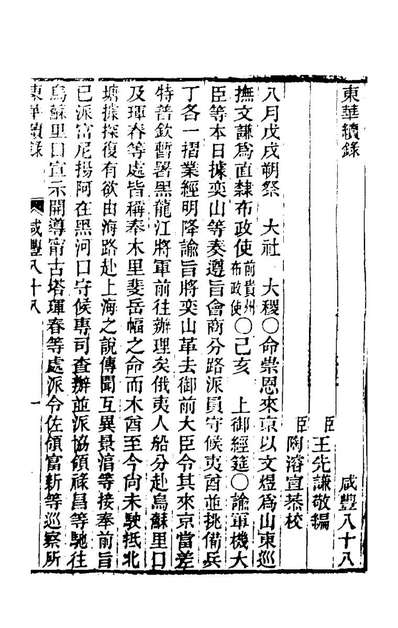 東華續錄
咸豐八十八
臣王先謙敬編
臣陶濬宣恭校
八月戊戌朔祭　大社　大稷○命崇恩來京以文煜爲山東巡
撫文謙爲直隸布政使前貴州布政使○己亥　上御經筵○諭軍機大
臣等本日據奕山等奏遵旨會商分路派員守候夷酋並挑備兵
丁各一摺業經明降諭旨將奕山革去御前大臣令其來京當差
特普欽暫署黑龍江將軍前往辦理矣俄夷人船分赴烏蘇里口
及琿春等處皆稱奉木里斐岳幅之命而木酋至今尚未駛抵北
塘據探復有欲由海路赴上海之說傳聞互異景淳等接奉前旨
已派富尼揚阿在黑河口守候專司查辦並派協領祿昌等馳往
烏蘇里口宣示開導甯古塔琿春等處派令佐領富新等巡察所
東華續錄
咸豐八十八
一